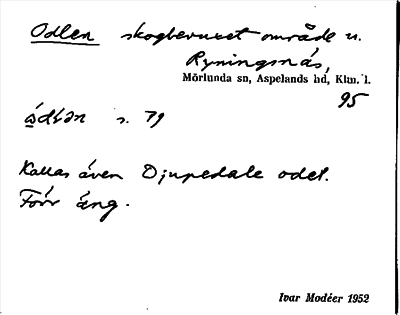 Odlen skogbevuxet område u.
Ryningsnäs,
Mörlunda sn, Aspelands hd, Klm. l.
95
s. 79
Kallas även Djupedale odel.
Förr äng.
Ivar Modéer 1952